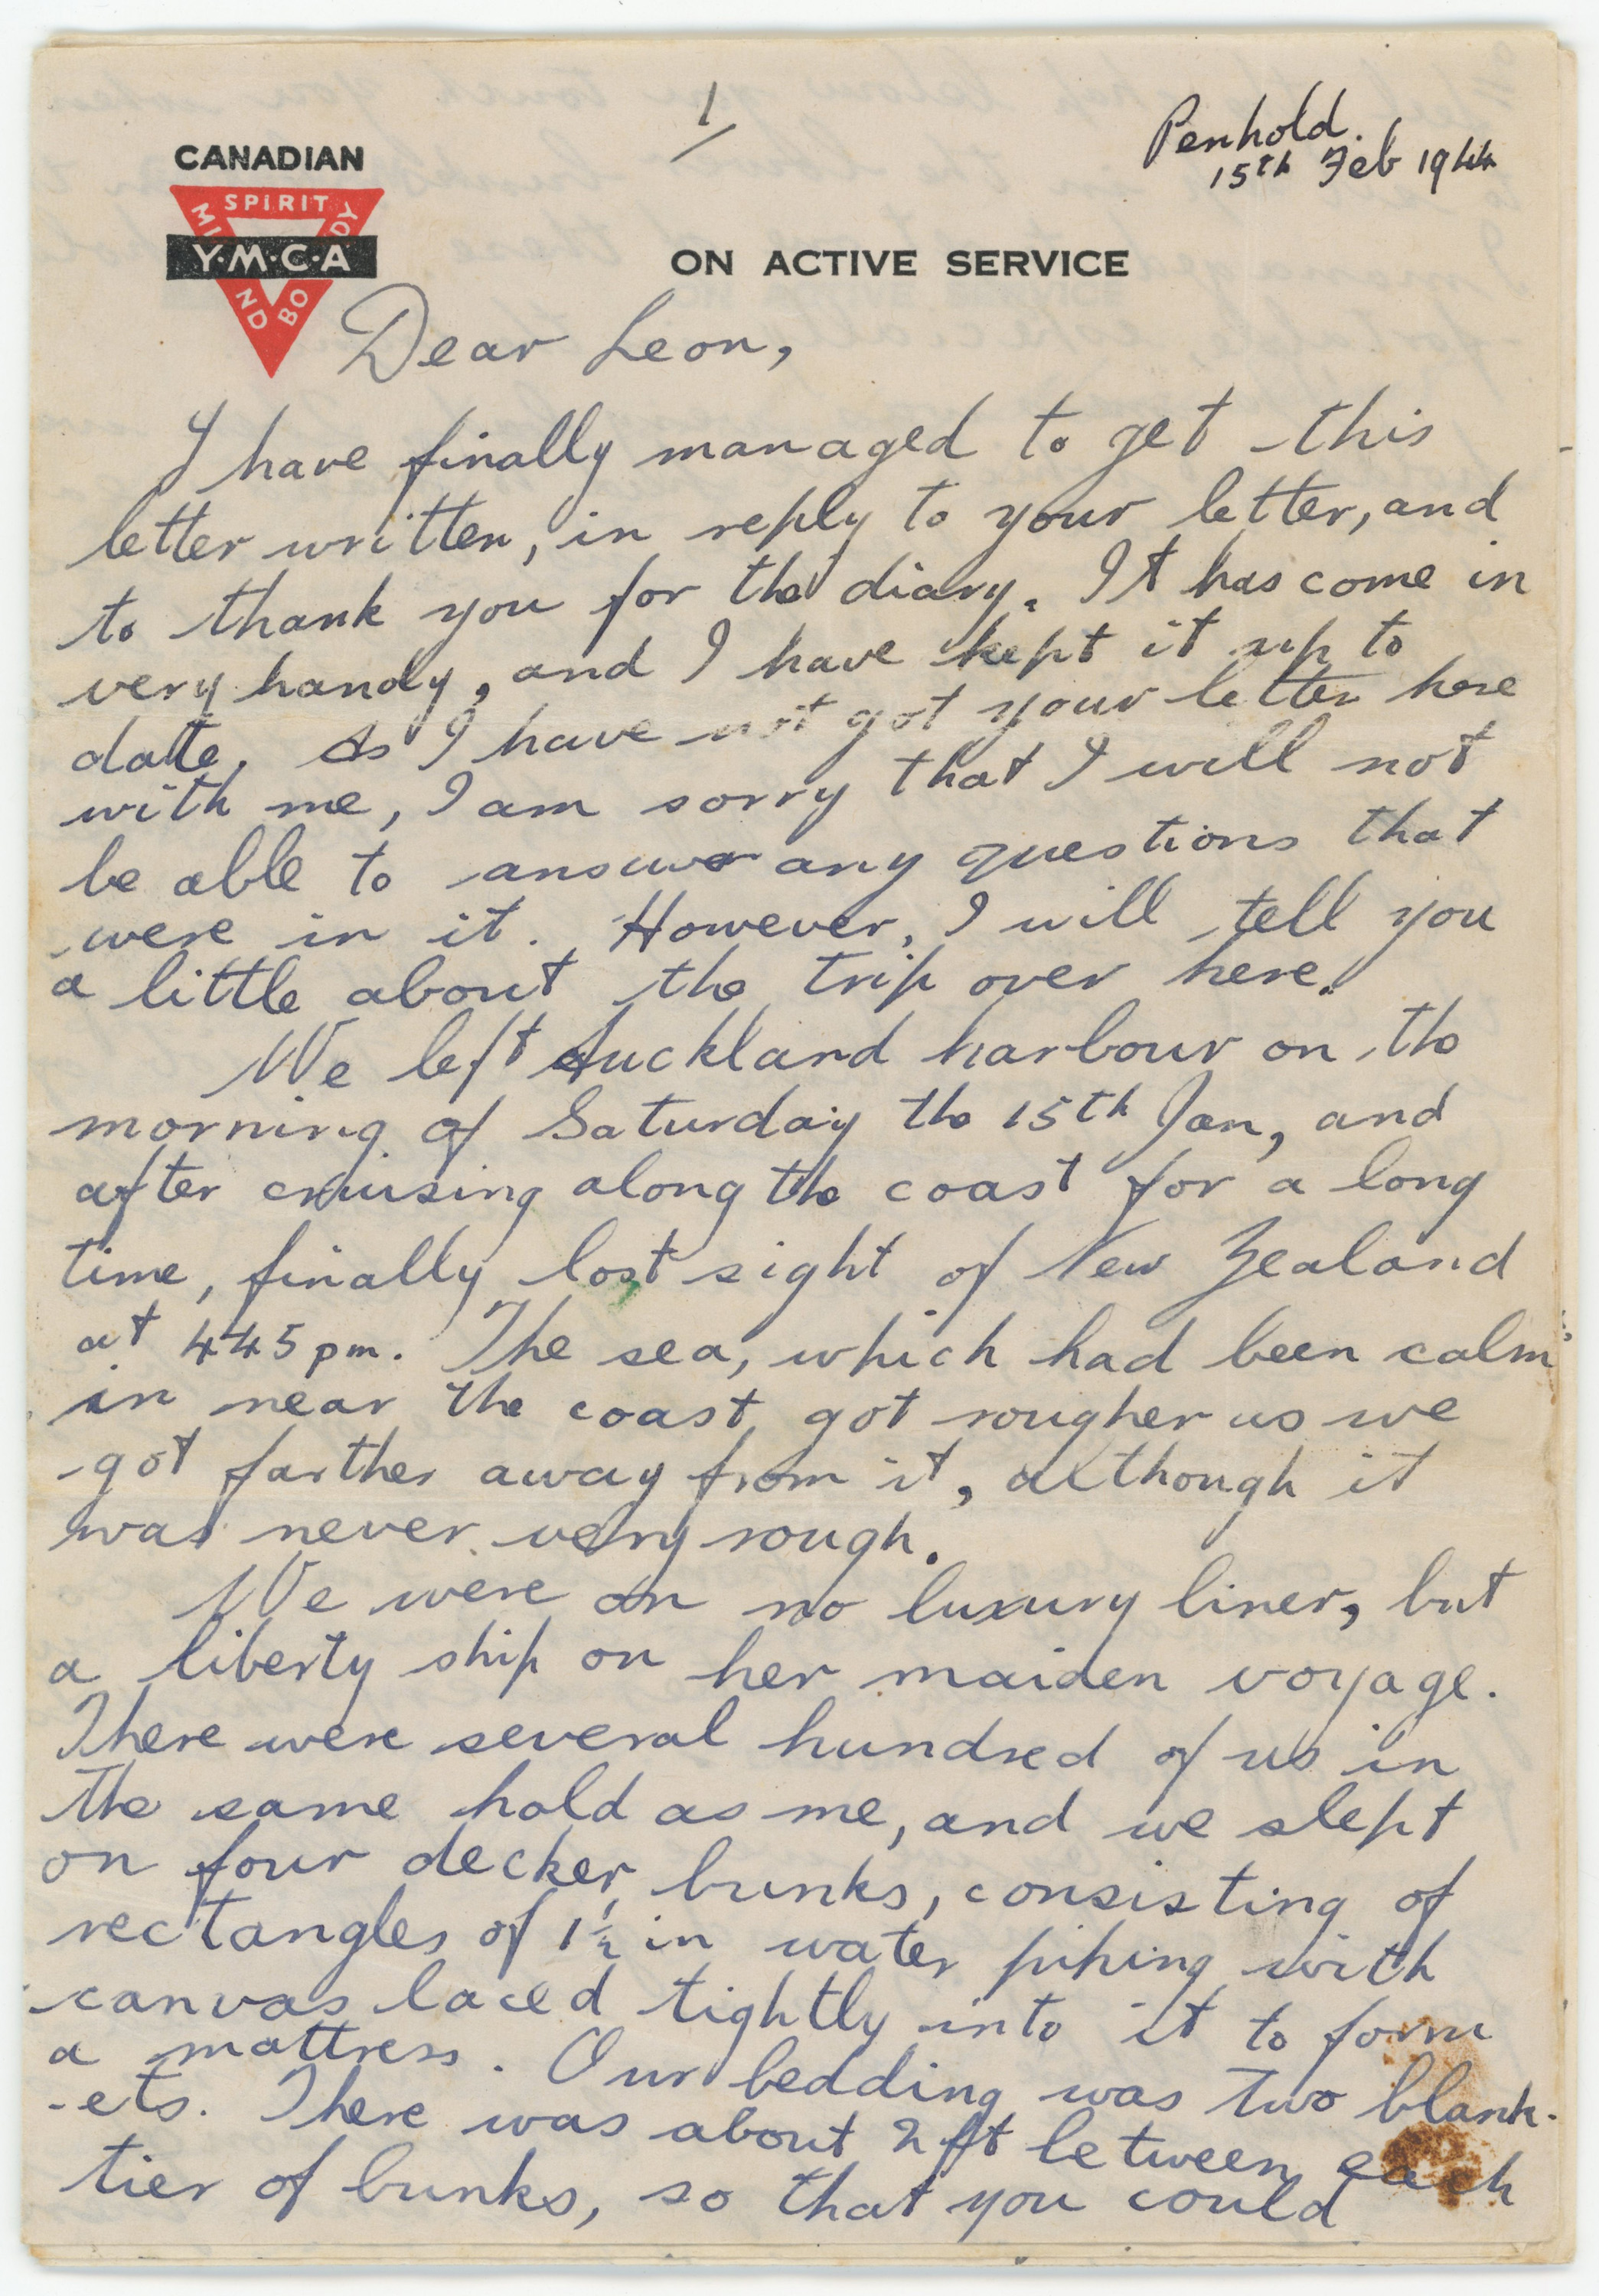 1/
Penhold.
15th Feb 1944
CANADIAN
SPIRIT
MIND
BODY
Y·M·C·A
ON ACTIVE SERVICE
Dear Leon,
I have finally managed to get this
letter written, in reply to your letter, and
to thank you for the diary. It has come in
very handy, and I have kept it up to
date. As I have not got your letter here
with me, I am sorry that I will not
be able to answer any questions that
were in it. However, I will tell you
a little about the trip over here.
We left Auckland harbour on the
morning of Saturday the 15th Jan, and
after cruising along the coast for a long
time, finally lost sight of New Zealand
at 445 pm. The sea, which had been calm
in near the coast, got rougher as we
got farther away from it, although it
was never very rough.
We were on no luxury liner, but
a liberty ship on her maiden voyage.
There were several hundred of us in
the same hold as me, and we slept
on four decker bunks, consisting of
rectangles of 1½ in water piping with
canvas laced tightly into it to form
a mattress. Our bedding was two blank-
-ets. There was about 2 ft between each
tier of bunks, so that you could